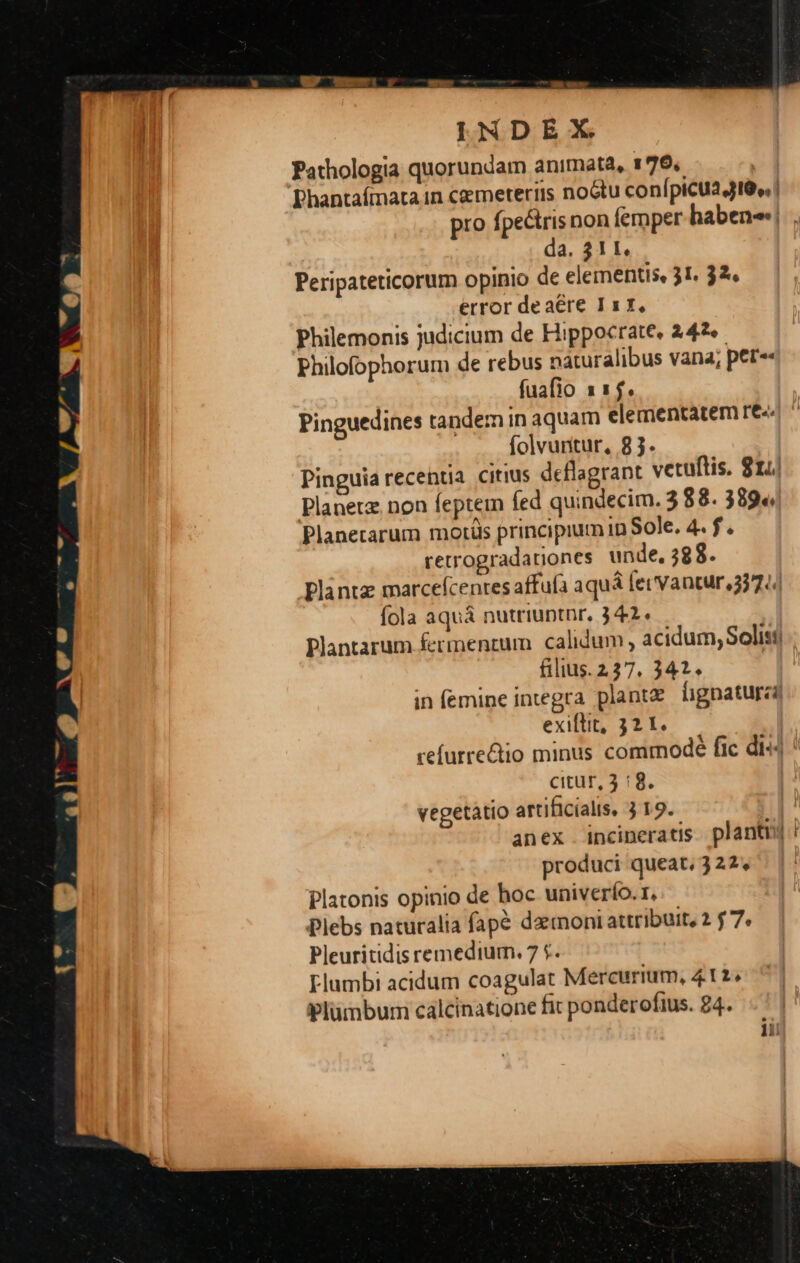 INDEX.
Pathologia quorundam animata, 170.
Phantaſmata in cæmeteriis noctu conſpicua 310.
pro ſpectris non ſemper haben-
da. 311.
Peripateticorum opinio de elementis, 31. 32.
error de aëre 151.
Philemonis judicium de Hippocrate, 242.
Philoſophorum de rebus naturalibus vana; per-
ſuaſio 115.
Pinguedines tandem in aquam elementatem re-
ſolvuntur, 83.
Pinguia recentia citius deflagrant vetuſtis. 81.
Planetæ non ſeptem ſed quindecim. 388. 389.
Planetarum motûs principium in Sole. 4. 5.
retrogradationes unde, 388.
Plantæ marceſcentes affuſa aquâ ſervantur, 337.
ſola aquâ nutriuntnr, 342.
Plantarum fermentum calidum, acidum, Solis
filius. 237. 342.
in ſemine integra plantæ ſignatura
exiſtit, 321.
reſurrectio minus commodè ſic di-
citur, 318.
vegetatio artificialis, 319.
an ex incineratis plantis
produci queat, 322.
Platonis opinio de hoc univerſo. 1.
Plebs naturalia ſæpè dæmoni attribuit, 257.
Pleuritidis remedium. 75.
Flumbi acidum coagulat Mercurium, 412.
Plumbum calcinatione fit ponderoſius. 84.
iii